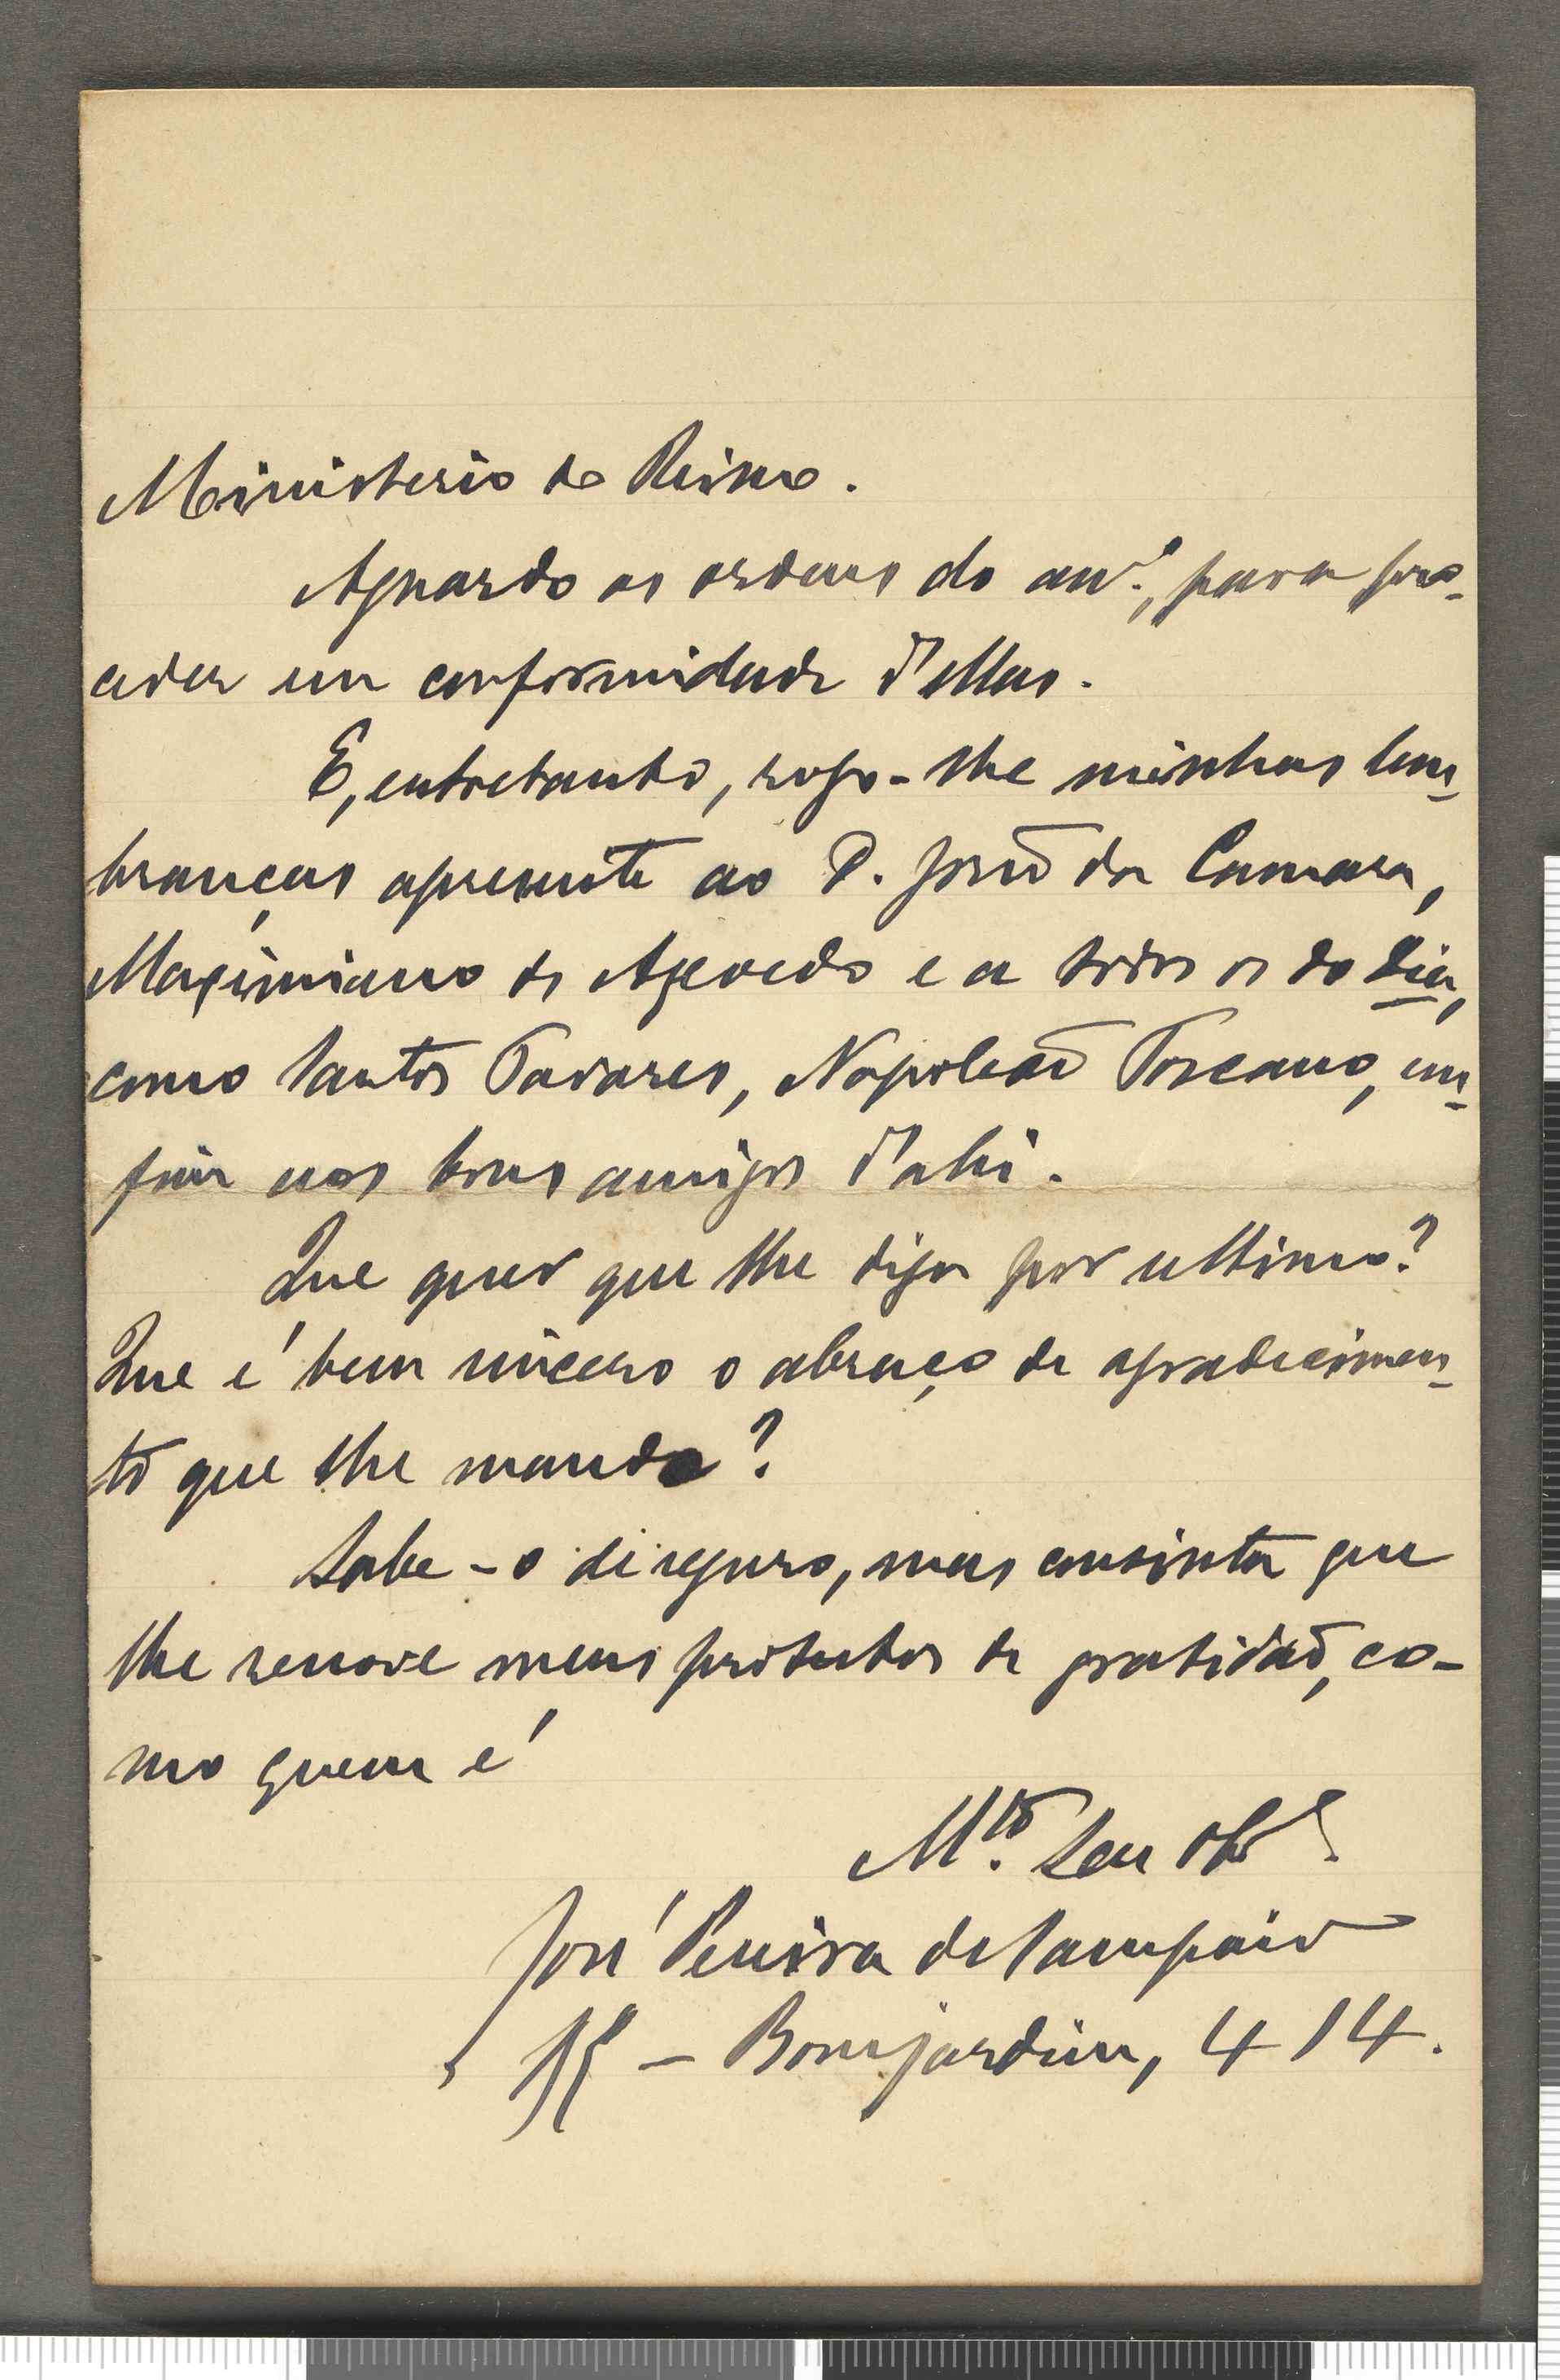 Ministerio do Reino.
Aguardo as ordens do am.º, para pro-
ceder em conformidade d'ellas.
E, entretanto, rogo-lhe minhas lem-
branças apresente ao D. João da Camara,
Maximiano de Azevedo e a todos os do Dia,
como Santos Tavares, Napoleão Toscano, em-
fim aos bons amigos d'ahi.
Que quer que lhe diga por ultimo?
Que é bem sincero o abraço de agradecimen-
to que lhe mando?
Sabe-o de seguro, mas consinta que
lhe renove meus protestos de gratidão, co-
mo quem é
M.to Seu
José Pereira de Sampaio
– Bomjardim, 414.